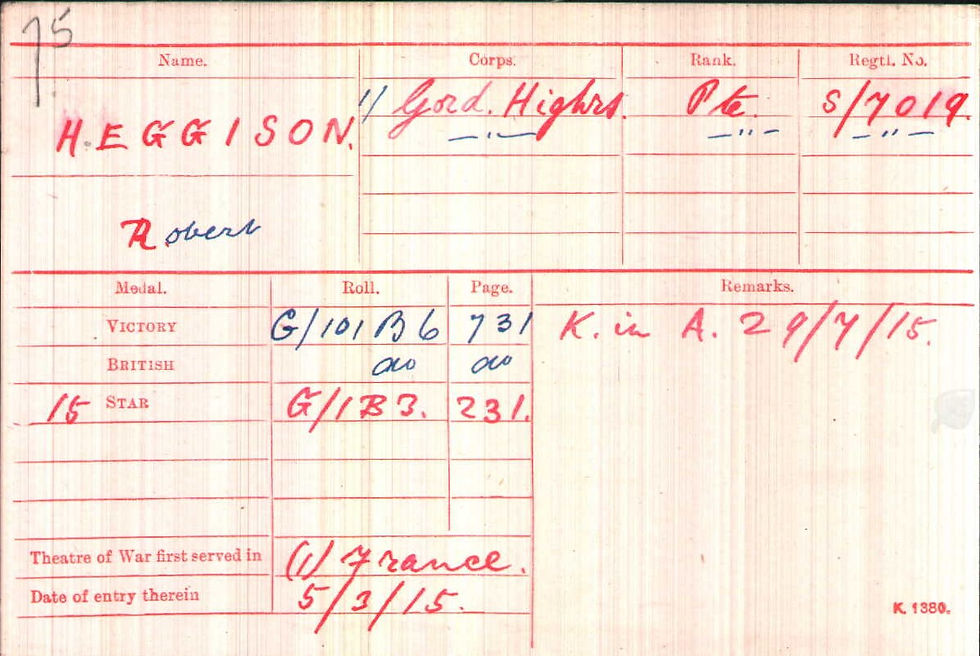 75
Name. Corps. Rank. Regtl. No.
HEGGISON. 1/ Gord. Highrs. Pte. S/7019.
—"— —"— —"—
Robert
Medal. Roll. Page. Remarks.
VICTORY G/101B6 731 K. in A. 29/7/15.
BRITISH do do
15 STAR G/1B3. 231.
Theatre of War first served in (1) France.
Date of entry therein 5/3/15.
K. 1380.